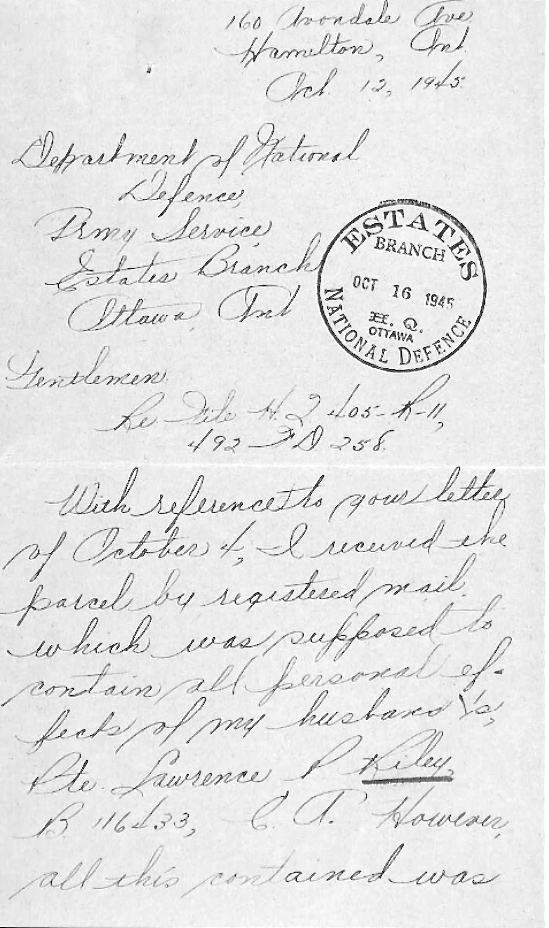 160 Avondale Ave
Hamilton, Ont
Oct. 12, 1945.
Department of National
Defence
Army Service
Estates Branch
Ottawa, Ont
ESTATES
BRANCH
OCT 16 1945
H. Q.
OTTAWA
NATIONAL DEFENCE
Gentlemen
Re File H.Q 405-R-11,
492 FD 258.
With reference to your letter
of October 4, I received the
parcel by registered mail
which was supposed to
contain all personal ef-
fects of my husband's,
Pte. Lawrence P Riley,
B 116433, C. A. However,
all this contained was